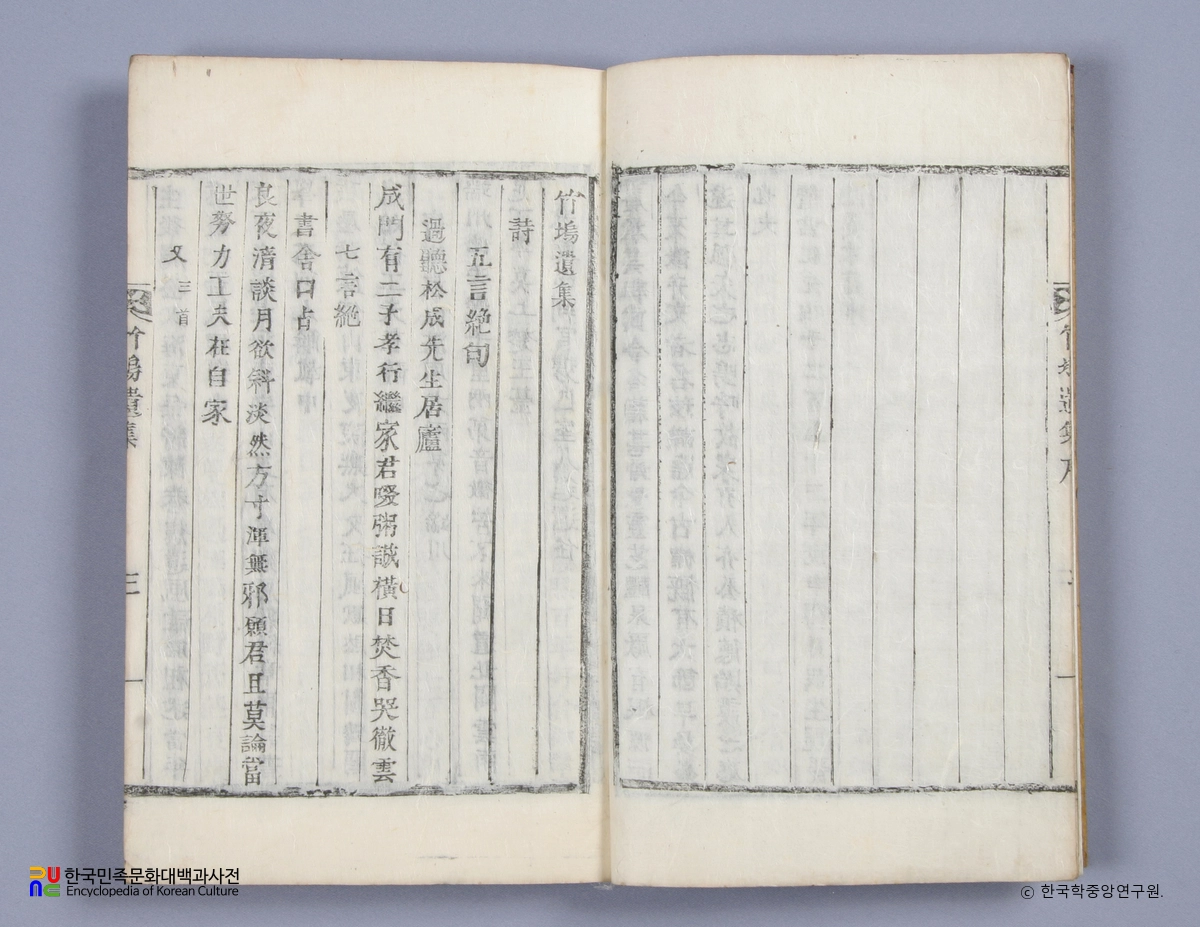 竹塢遺集
詩
五言絶句
過聽松成先生居廬
成門有二子孝行繼家君啜粥誠橫日焚香哭徹雲
七言絶
書舍口占
良夜淸談月欲斜淡然方寸渾無邪願君且莫論當
世努力工夫在自家
又 三首
竹塢遺集
一
한국민족문화대백과사전
Encyclopedia of Korean Culture
© 한국학중앙연구원.